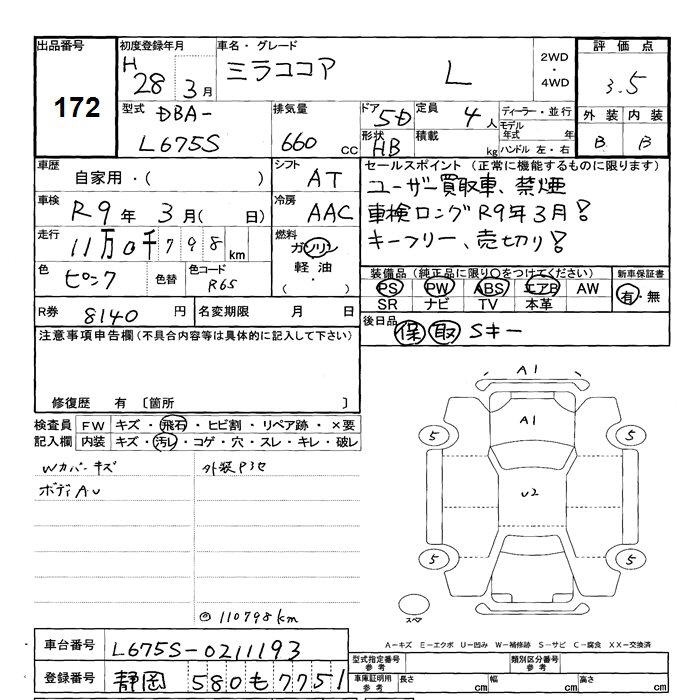 出品番号 初度登録年月 車名・グレード 2WD・4WD 評価点
172 H28 3月 ミラココア L 3.5
型式 DBA-L675S 排気量 660cc ドア 5D 定員 4人 ディーラー・並行 外装 内装
形状 HB 積載 kg モデル年式 年 ハンドル 左・右 B B
車歴 自家用・( ) シフト AT セールスポイント (正常に機能するものに限ります)
ユーザー買取車、禁煙
車検 R9年 3月( 日) 冷房 AAC 車検ロングR9年3月!
走行 11万0千798km 燃料 ガソリン 軽油・( ) キーフリー、売切り!
色 ピンク 色替 色コード R65 装備品(純正品に限り○をつけてください) 新車保証書
PS PW ABS エアB AW 有・無
SR ナビ TV 本革
R券 8140円 名変期限 月 日 後日品 保 取 Sキー
注意事項申告欄(不具合内容等は具体的に記入して下さい)
修復歴 有 〔箇所 〕
検査員 FW キズ・飛石・ヒビ割・リペア跡・×要
記入欄 内装 キズ・汚レ・コゲ・穴・スレ・キレ・破レ
Wカバーキズ 外装Pヨセ
ボディAU
◎110798km
A1
A1
5 5
U2
5 5
スペア
A-キズ E-エクボ U-凹み W-補修跡 S-サビ C-腐食 XX-交換済
車台番号 L675S-0211193 型式指定番号 参考 類別区分番号 参考
登録番号 静岡 580も7751 車庫証明用 参考 長さ cm 幅 cm 高さ cm